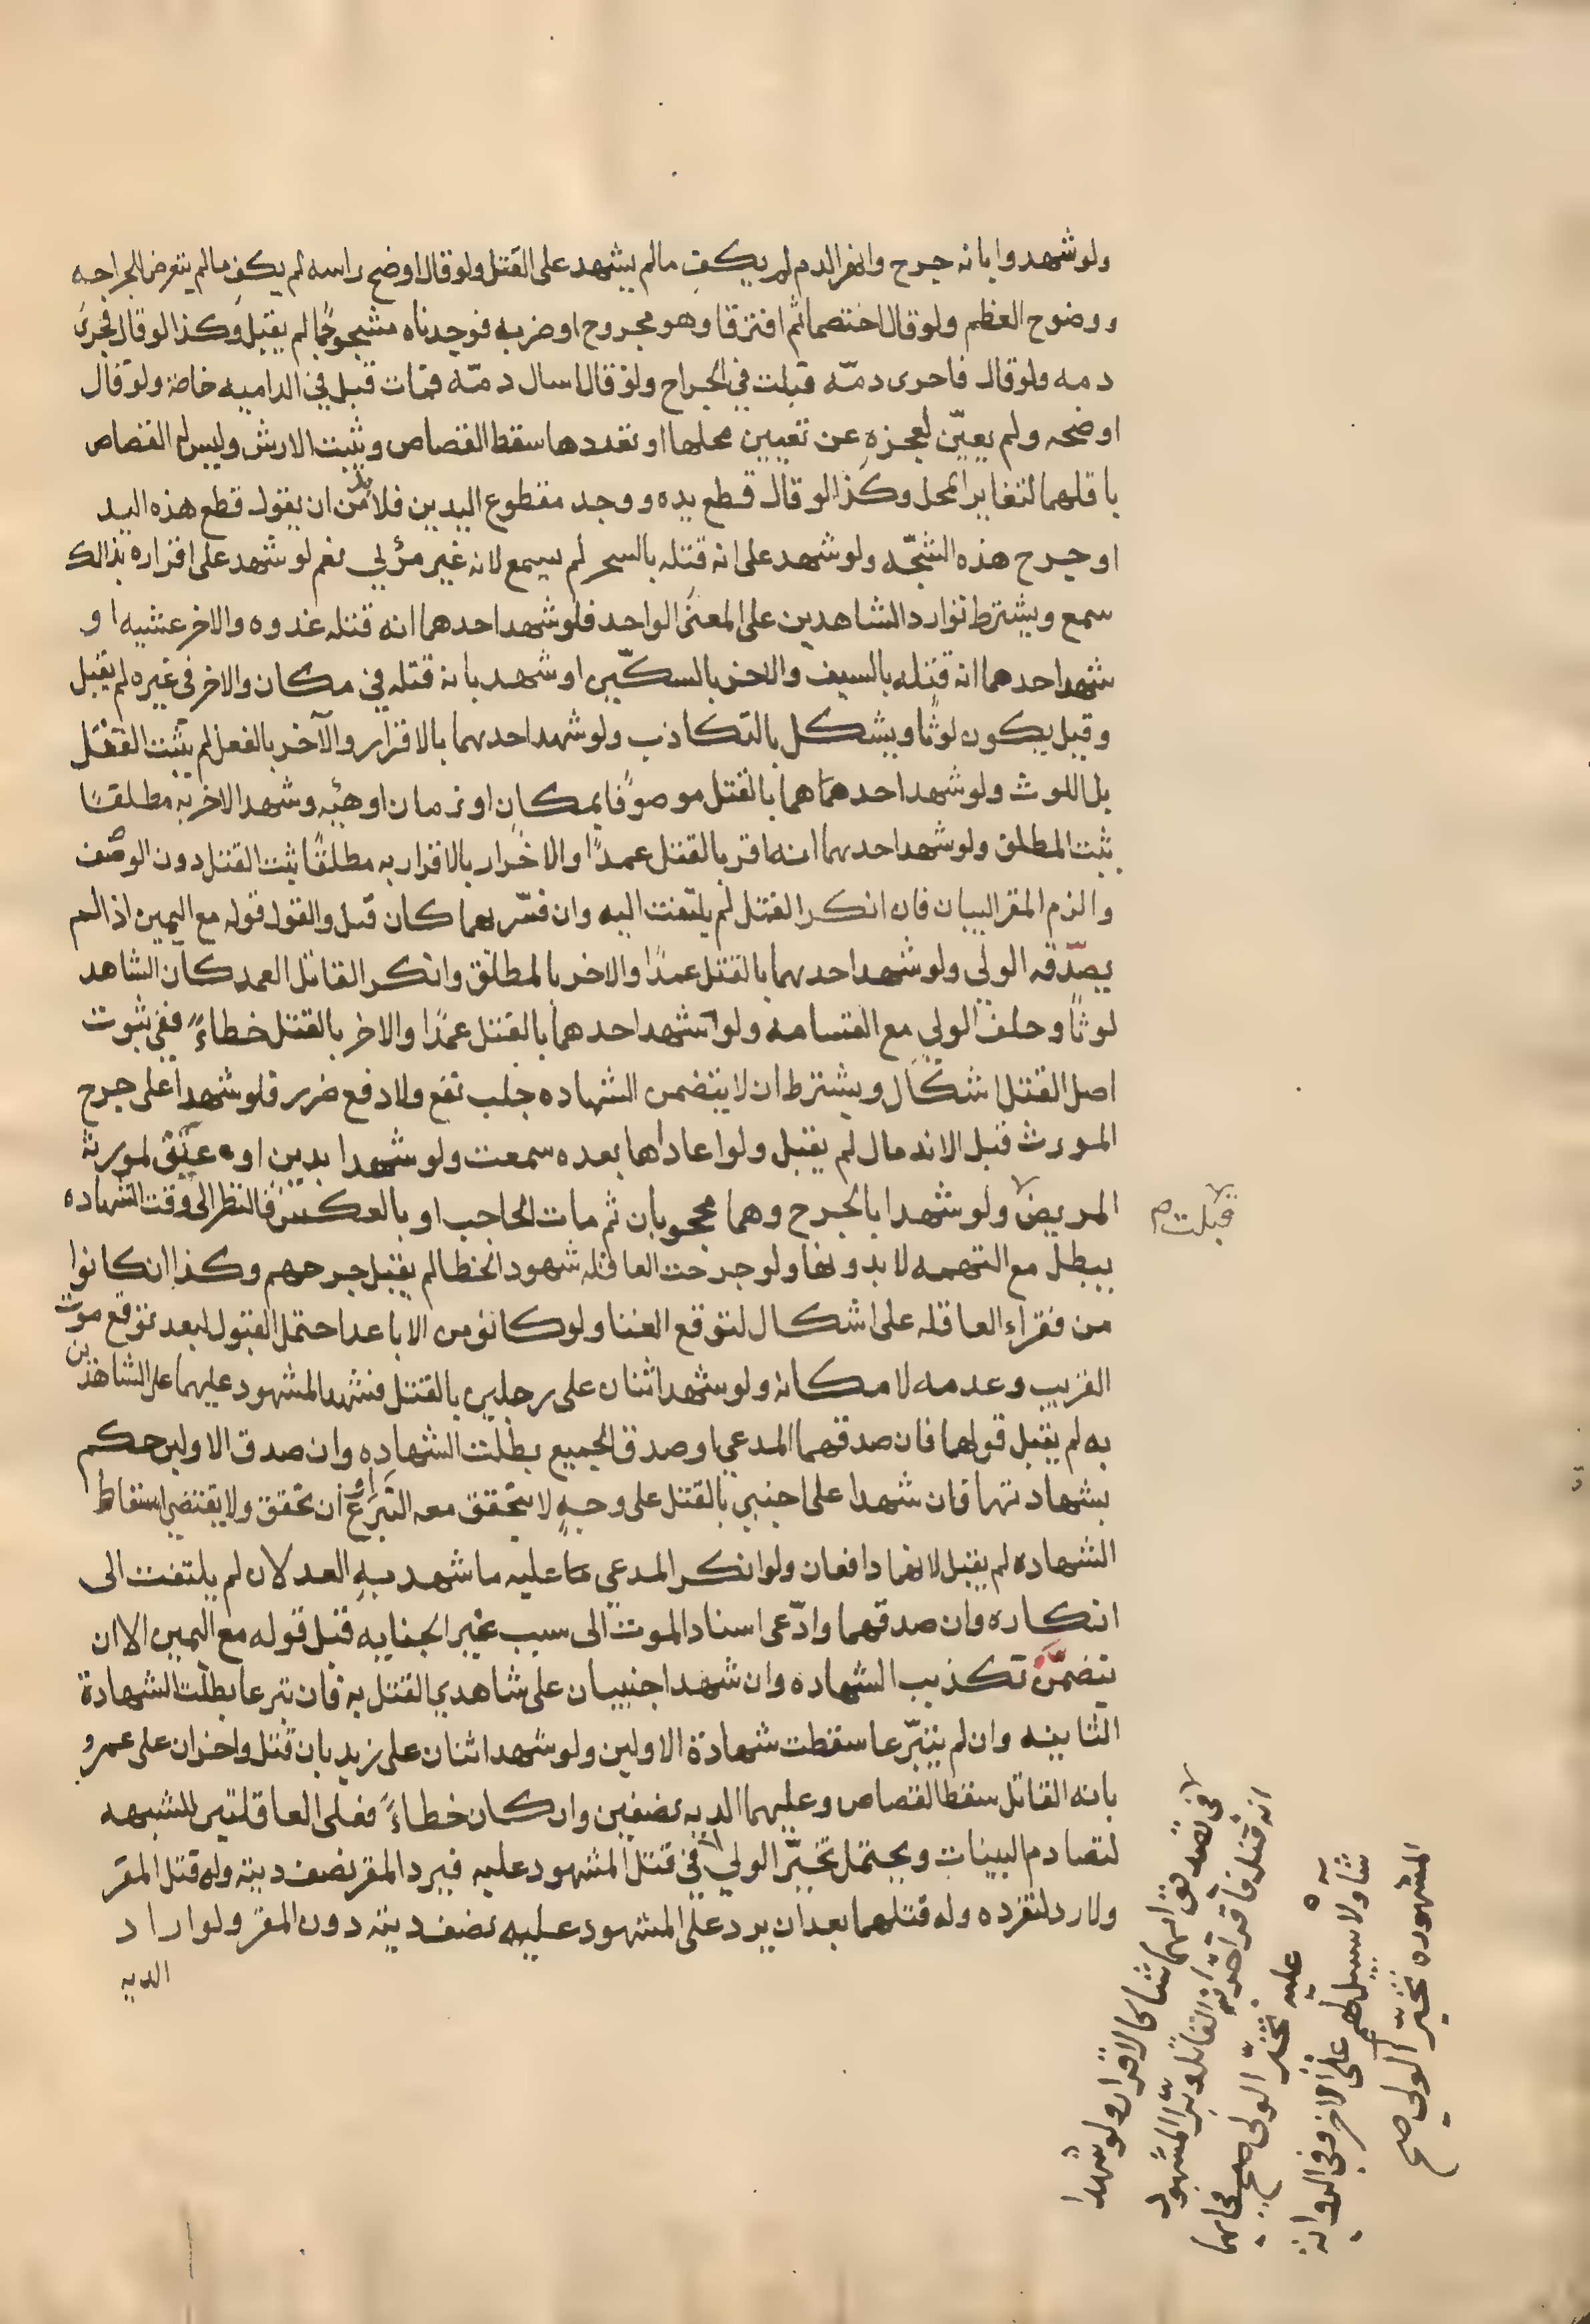 ولو شهدوا بانه جرح وانهر الدم لم يكف مالم يشهد على القتل ولو قال اوضح راسه لم يكف مالم يتعرض للجراحه
ووضوح العظم ولو قال اختصما ثم افترقا وهو مجروح او ضربه فوجدناه مشجوجًا لم يقبل وكذا لو قال فجرى
دمه ولو قال فاجرى دمّه قبلت في الجراح ولو قال اسال دمّه فمات قبل في الداميه خاصة ولو قال
اوضحه ولم يعيّن لعجزه عن تعيين محلها او تعددها سقط القصاص ويثبت الارش وليس له القصاص
باقلهما لتغاير المحل وكذا لو قال قطع يده ووجد مقطوع اليدين فلا بد من ان يقول قطع هذه اليد
او جرح هذه الشجّه ولو شهد على انه قتله بالسحر لم يسمع لانه غير مرئي نعم لو شهد على اقراره بذالك
سمع ويشترط توارد الشاهدين على المعنى الواحد فلو شهد احدهما انه قتله غدوه والاخر عشيه او
شهد احدهما انه قتله بالسيف والاخر بالسكّين او شهد بانه قتله في مكان والاخر في غيره لم يقبل
وقيل يكون لوثًا ويشكل بالتكاذب ولو شهد احدهما بالاقرار والآخر بالفعل لم يثبت القتل
بل اللوث ولو شهد احدهما بالقتل موصوفًا بمكان او زمان او هيئه وشهد الاخر به مطلقًا
ثبت المطلق ولو شهد احدهما انه اقر بالقتل عمدًا والاخر بالاقرار به مطلقًا ثبت القتل دون الوصف
والزم المقر البيان فان انكر القتل لم يلتفت اليه وان فسّر بما كان قبل والقول قوله مع اليمين اذا لم
يصدّقه الولي ولو شهد احدهما بالقتل عمدًا والاخر بالمطلق وانكر القاتل العمد كان الشاهد
لوثًا وحلف الولي مع القسامه ولو شهد احدهما بالقتل عمدًا والاخر بالقتل خطاءً ففي ثبوت
اصل القتل اشكال ويشترط ان لا يتضمن الشهاده جلب نفع ولا دفع ضرر فلو شهدا على جرح
المورث قبل الاندمال لم يقبل ولو اعاداها بعده سمعت ولو شهدا بدين او عتق لمورثه
المريض ولو شهدا بالجرح وهما محجوبان ثم مات الحاجب او بالعكس فالنظر الى وقت الشهاده
قبلت صح
يبطل مع التهمه لا بدونها ولو جرحت العاقله شهود الخطا لم يقبل جرحهم وكذا ان كانوا
من فقراء العاقله على اشكال لتوقع الغنا ولو كانو من الاباعد احتمل القبول لبعد توقع موت
القريب وعدمه لامكانه ولو شهد اثنان على رجلين بالقتل فشهد المشهود عليهما على الشاهدين
به لم يقبل قولهما فان صدقهما المدعي او صدق الجميع بطلت الشهاده وان صدق الاولين حكم
بشهادتهما فان شهدا على اجنبي بالقتل على وجهٍ لا يتحقق معه التبرع او ان تحقق ولا يقتضي اسقاط
الشهاده لم يقبل لانهما دافعان ولو انكر المدعي عليه ما شهد به العدلان لم يلتفت الى
انكاره وان صدقهما وادّعى اسناد الموت الى سبب غير الجنايه قبل قوله مع اليمين الا ان
يتضمّن تكذيب الشهاده وان شهد اجنبيان على شاهدي القتل به فان تبرعا بطلت الشهادة
الثانيه وان لم يتبّرعا سقطت شهادة الاولين ولو شهد اثنان على زيد بان قتل واخران على عمرو
بانه القاتل سقط القصاص وعليهما الديه نصفين وان كان خطاءً فعلى العاقلتين للشبهه
لتصادم البينات ويحتمل تخيّر الولي في قتل المشهود عليه فيرد المقر نصف ديته وله قتل المقر
ولا رد لتفرده وله قتلهما بعد ان يرد على المشهود عليه نصف ديته دون المقر ولو اراد
الديه
في تصديق ايهما شا كالاقرار ولو شهدا
انه قتله فاقر اخر انه القاتل وبرّا المشهود
عليه تخيّر الولي صح
شآ ولا سبيل لهم على الاخر وفي الرواية
المشهوره تخيّر الولي صح